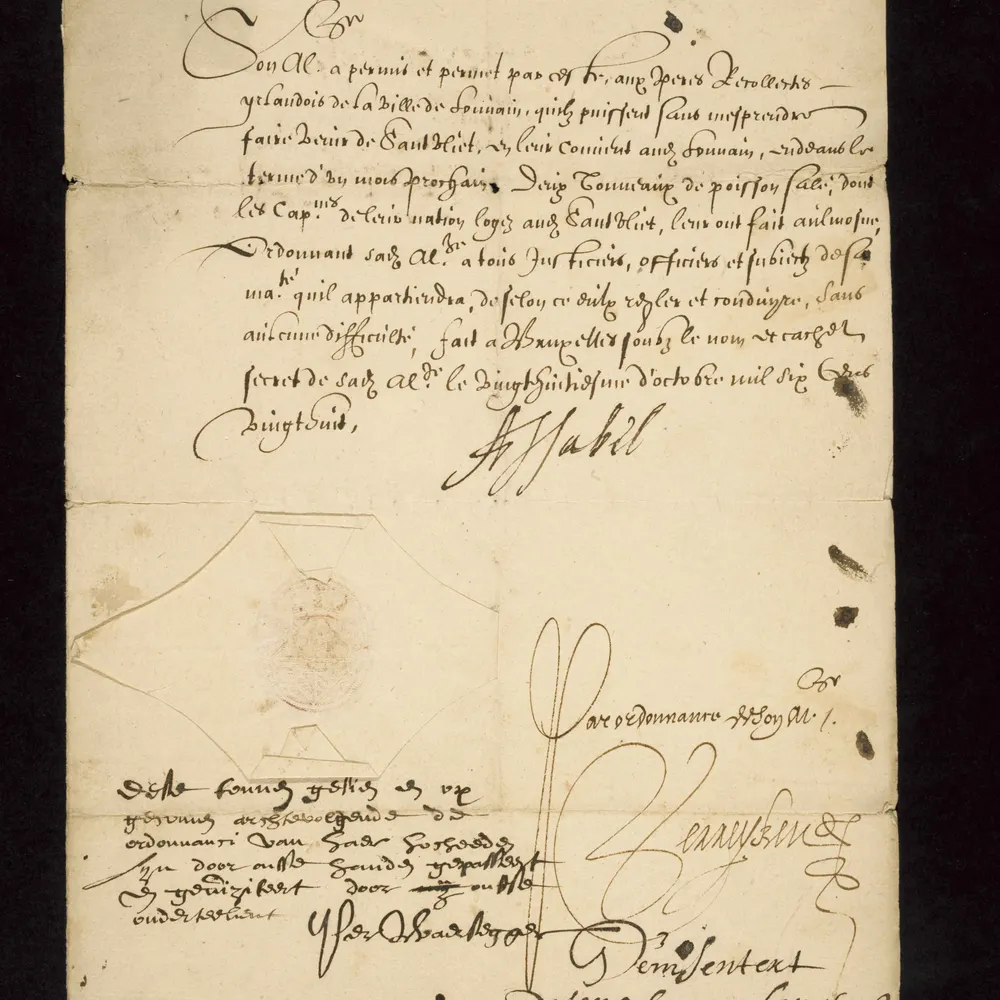 Son Al.ze a permis et permet par ceste, aux Peres Recollectes
yrlandois de la ville de Louvain, quilz puissent sans mesprendre
faire venir de Santvliet, en leur Convent audt Louvain, endeans le
terme d'un mois prochain, Deux Tonneaux de poisson salé, dont
les Cap.nes de leur nation logez audt Santvliet, leur ont fait aulmosne,
Ordonnant sadt Al.ze a tous Justiciers, officiers et subiectz de sa
ma.té quil appartiendra, de selon ce eulx regler et conduyre, sans
aulcune difficulté, fait a Bruxelles soubz le nom et cachet
secret de sadt Al.ze le vingthuitiesme d'octobre mil six Cens
vingthuit,
A Isabel
Par ordonnance de son Al.ze
Verreycken
dese tonnen gesien en
achtervolgende de
ordonnanci van haer hoocheeden
syn door onse handen gepasseert
en geviziteert door onse
onderteekent